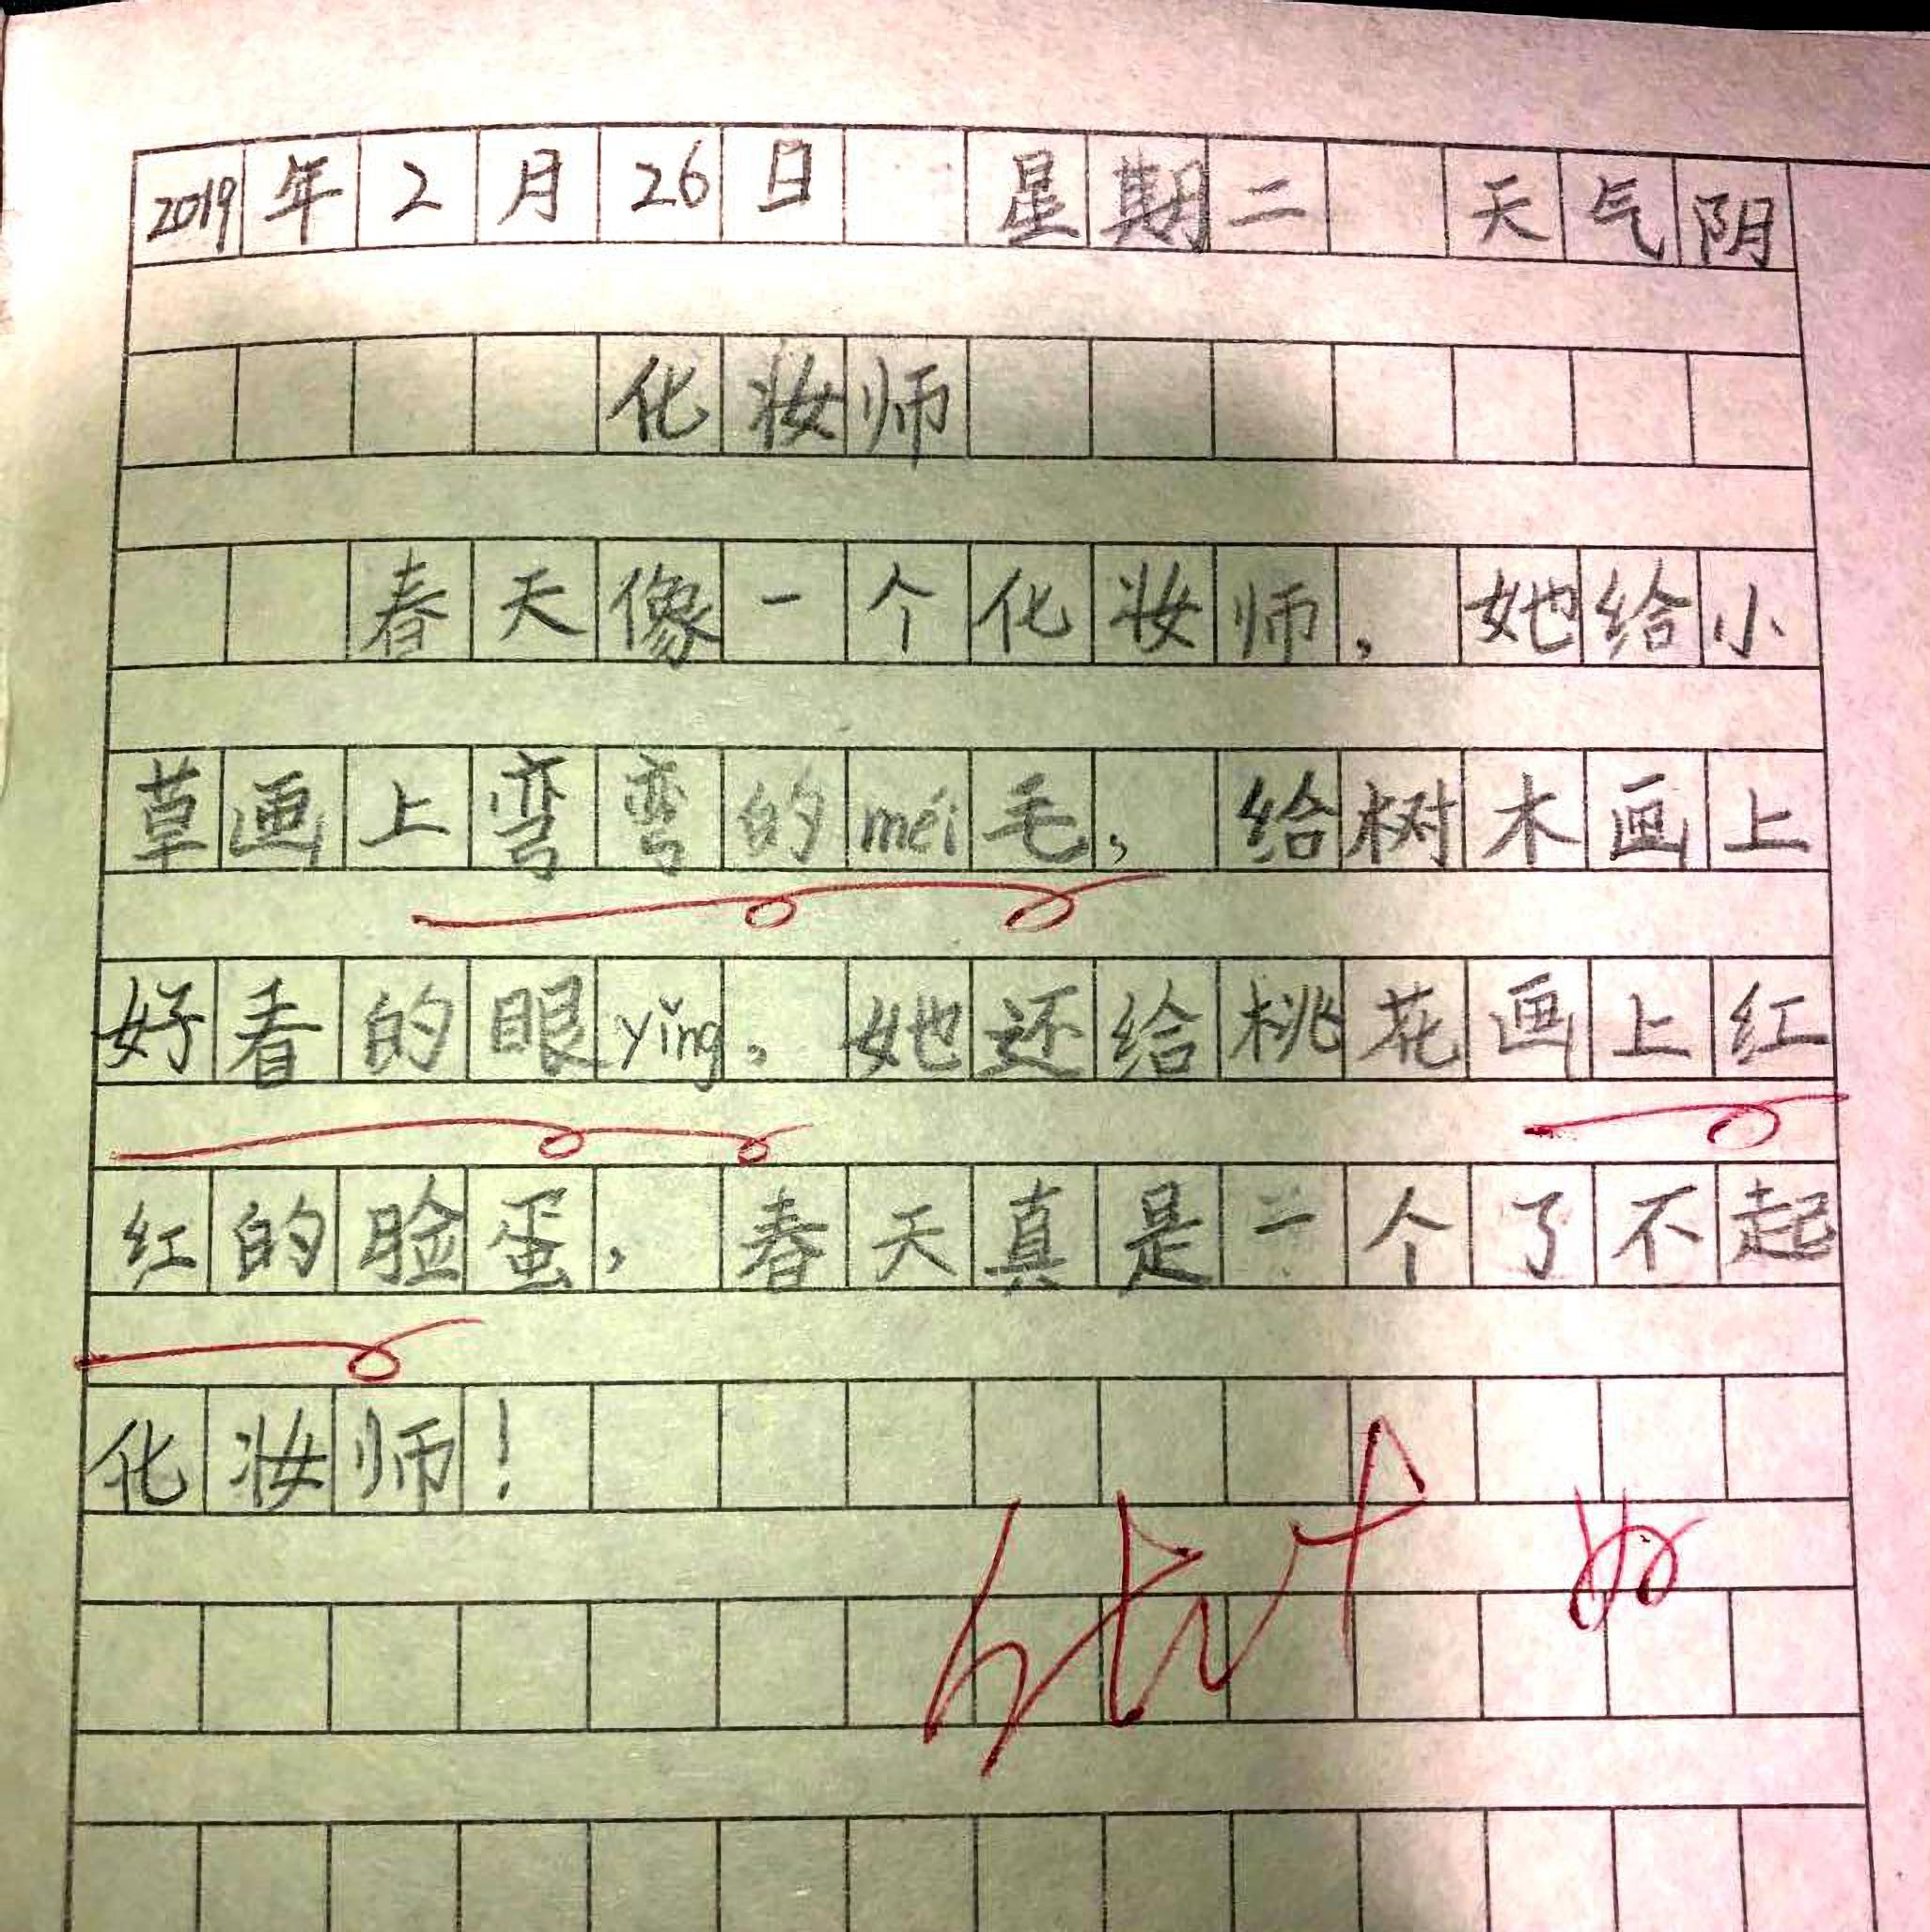 2019年2月26日 星期二 天气阴
化妆师
春天像一个化妆师，她给小
草画上弯弯的méi毛，给树木画上
好看的眼yǐng。她还给桃花画上红
红的脸蛋，春天真是一个了不起
化妆师！